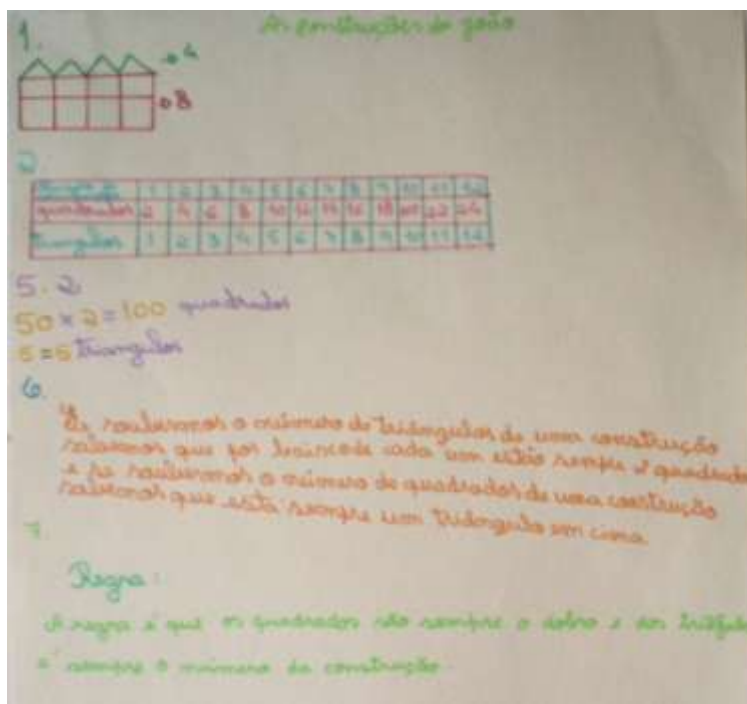 As construções do joão
1.
→ 4
→ 8
2
1 2 3 4 5 6 7 8 9 10 11 12
quadrados 2 4 6 8 10 12 14 16 18 20 22 24
triangulos 1 2 3 4 5 6 7 8 9 10 11 12
5. 2
50 x 2 = 100 quadrados
5 = 5 triangulos
6.
Se soubermos o número de triângulos de uma construção
sabemos que por cada um estão sempre 2 quadrados
e se soubermos o número de quadrados de uma construção
sabemos que está sempre um triângulo em cima.
7.
Regra:
A regra é que os quadrados são sempre o dobro e dos
é sempre o número da construção.